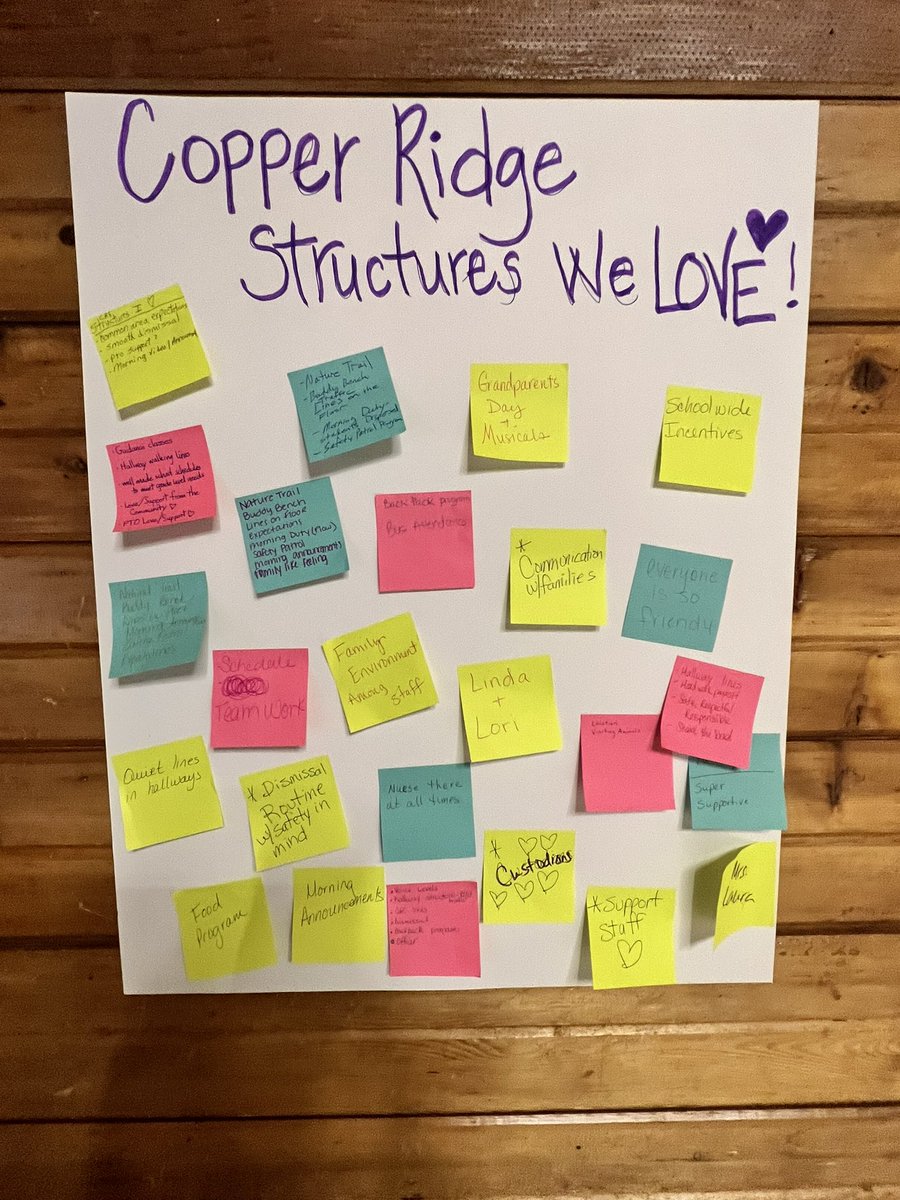 Copper Ridge
Structures We LOVE!
Structures I
- Common area expectations
- Smooth dismissal
- PTO Support
- Morning Video/
- Nature Trail
- Buddy Bench
Lines on the
Floor
- Morning Duty-
students Dispersed
- Safety Patrol Program
Grandparents
Day
+
Musicals
Schoolwide
Incentives
• Guidance classes
• Hallway walking lines
• well made school schedules
to meet grade level needs
• Love/Support from the
Community
PTO Love/Support
Nature Trail
Buddy Bench
Lines on Floor
Expectations
Morning Duty (Flow)
Safety Patrol
Morning announcements
Family like feeling
Back Pack program
Bus Attendance
* Communication
w/families
everyone
is so
friendly
Trail
Buddy Bench
Morning
Expectations
Schedule
Team Work
Family
Environment
Among
Staff
Linda
+
Lori
Location
Visiting Animals
Hallway lines
- Safe, Respectful
Responsible
Super
Supportive
Quiet lines
in hallways
* Dismissal
Routine
w/safety in
mind
Nurse there
at all times
Food
Program
Morning
Announcements
• Voice Levels
• Hallway
• Dismissal
• Backpack program
• Office
* Custodians
* Support
Staff
Mrs.
Laura